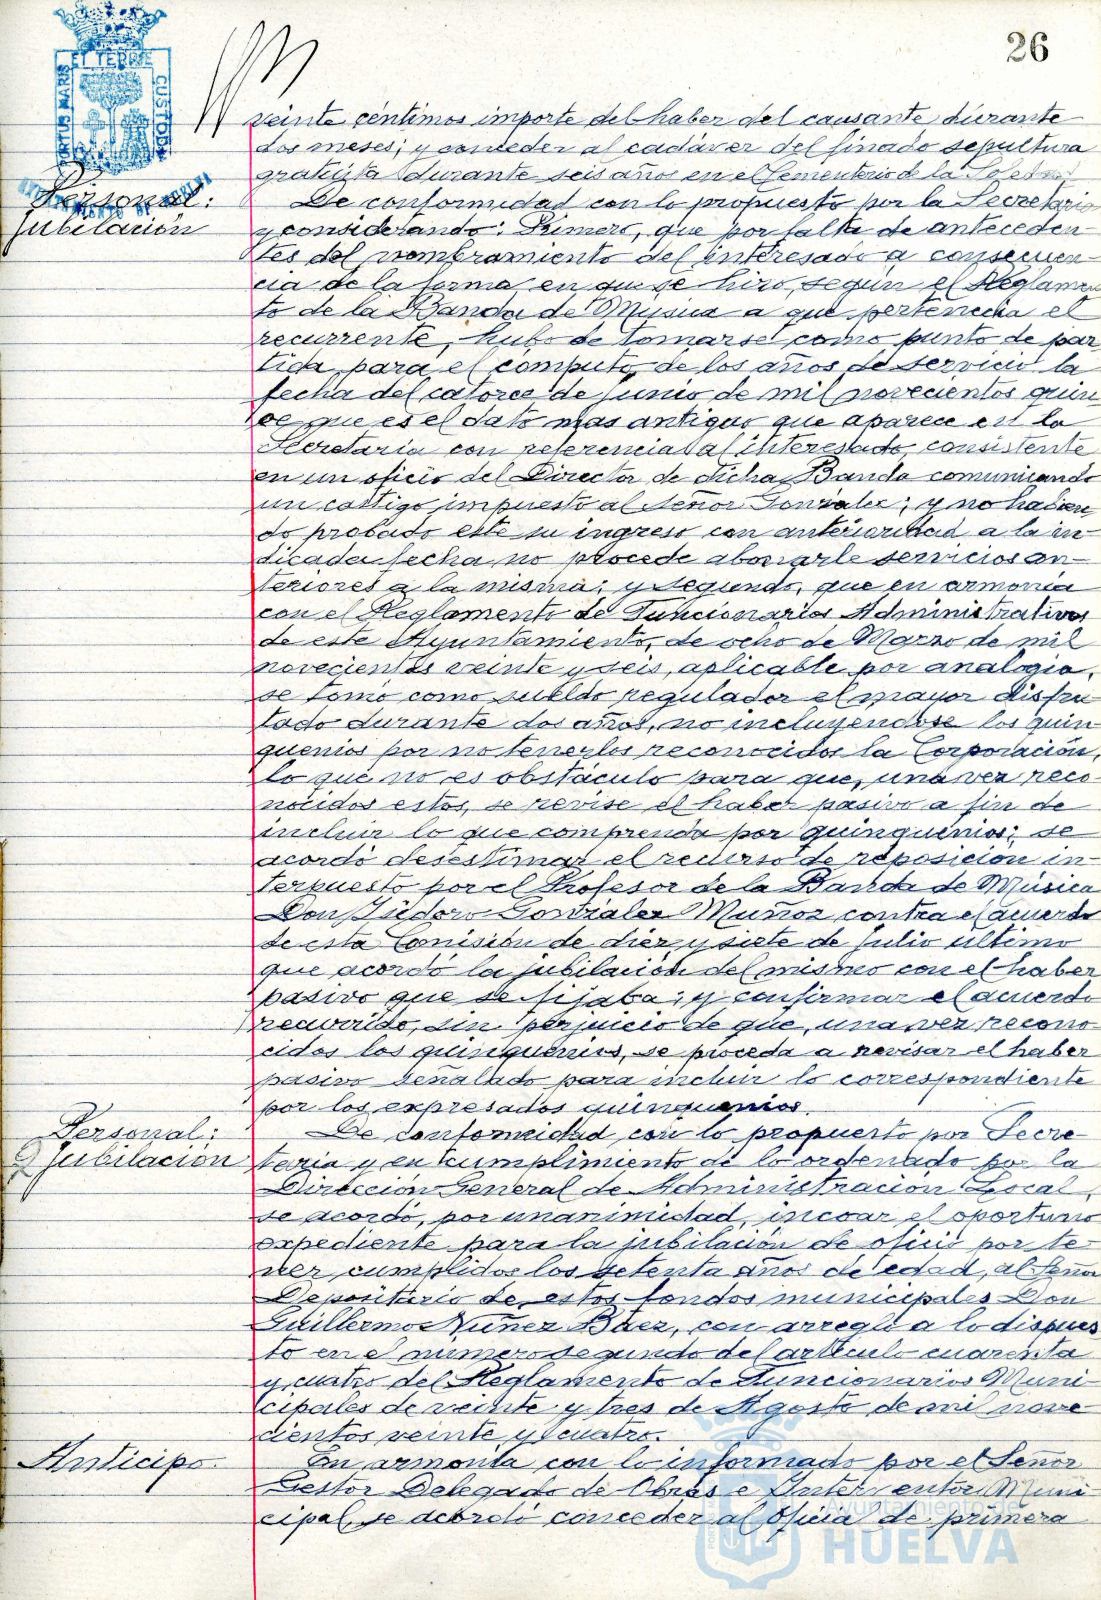 26
PORTUS MARIS ET TERRE CUSTODIA
AYUNTAMIENTO DE HUELVA
veinte céntimos importe del haber del causante durante
dos meses; y conceder al cadáver del finado sepultura
gratuita durante seis años en el Cementerio de la Soledad.
Personal:
Jubilación
De conformidad con lo propuesto por la Secretaría
y considerando: Primero, que por falta de anteceden-
tes del nombramiento del interesado a consecuen-
cia de la forma en que se hizo, según el Reglamen
to de la Banda de Música a que pertenecía el
recurrente, hubo de tomarse como punto de par
tida para el cómputo de los años de servicio la
fecha del catorce de Junio de mil novecientos quin
ce que es el dato mas antiguo que aparece en la
Secretaría con referencia al interesado, consistente
en un oficio del Director de dicha Banda comunicando
un castigo impuesto al Señor González; y no habien
do probado este su ingreso con anterioridad a la in-
dicada fecha no procede abonarle servicios an-
teriores a la misma; y segundo, que en armonía
con el Reglamento de Funcionarios Administrativos
de este Ayuntamiento, de ocho de Marzo de mil
novecientos veinte y seis, aplicable por analogía,
se tomó como sueldo regulador el mayor disfru-
tado durante dos años, no incluyendose los quin-
quenios por no tenerlos reconocidos la Corporación,
lo que no es obstáculo para que, una vez reco-
nocidos estos, se revise el haber pasivo a fin de
incluir lo que comprenda por quinquenios; se
acordó desestimar el recurso de reposición in-
terpuesto por el Profesor de la Banda de Música
Don Isidoro González Muñoz contra el acuerdo
de esta Comisión de diez y siete de Julio último
que acordó la jubilación del mismo con el haber
pasivo que se fijaba; y confirmar el acuerdo
recurrido, sin perjuicio de que, una vez recono-
cidos los quinquenios, se proceda a revisar el haber
pasivo señalado para incluir lo correspondiente
por los expresados quinquenios.
Personal:
Jubilación
De conformidad con lo propuesto por Secre-
taría y en cumplimiento de lo ordenado por la
Dirección General de Administración Local,
se acordó, por unanimidad, incoar el oportuno
expediente para la jubilación de oficio por te-
ner cumplidos los setenta años de edad, al Señor
Depositario de estos fondos municipales Don
Guillermo Nuñez Báez, con arreglo a lo dispues
to en el número segundo del artículo cuarenta
y cuatro del Reglamento de Funcionarios Muni-
cipales de veinte y tres de Agosto de mil nove-
cientos veinte y cuatro.
Anticipo.
En armonía con lo informado por el Señor
Gestor Delegado de Obras e Interventor Muni-
cipal, se acordó conceder al Oficial de primera
Ayuntamiento de
HUELVA